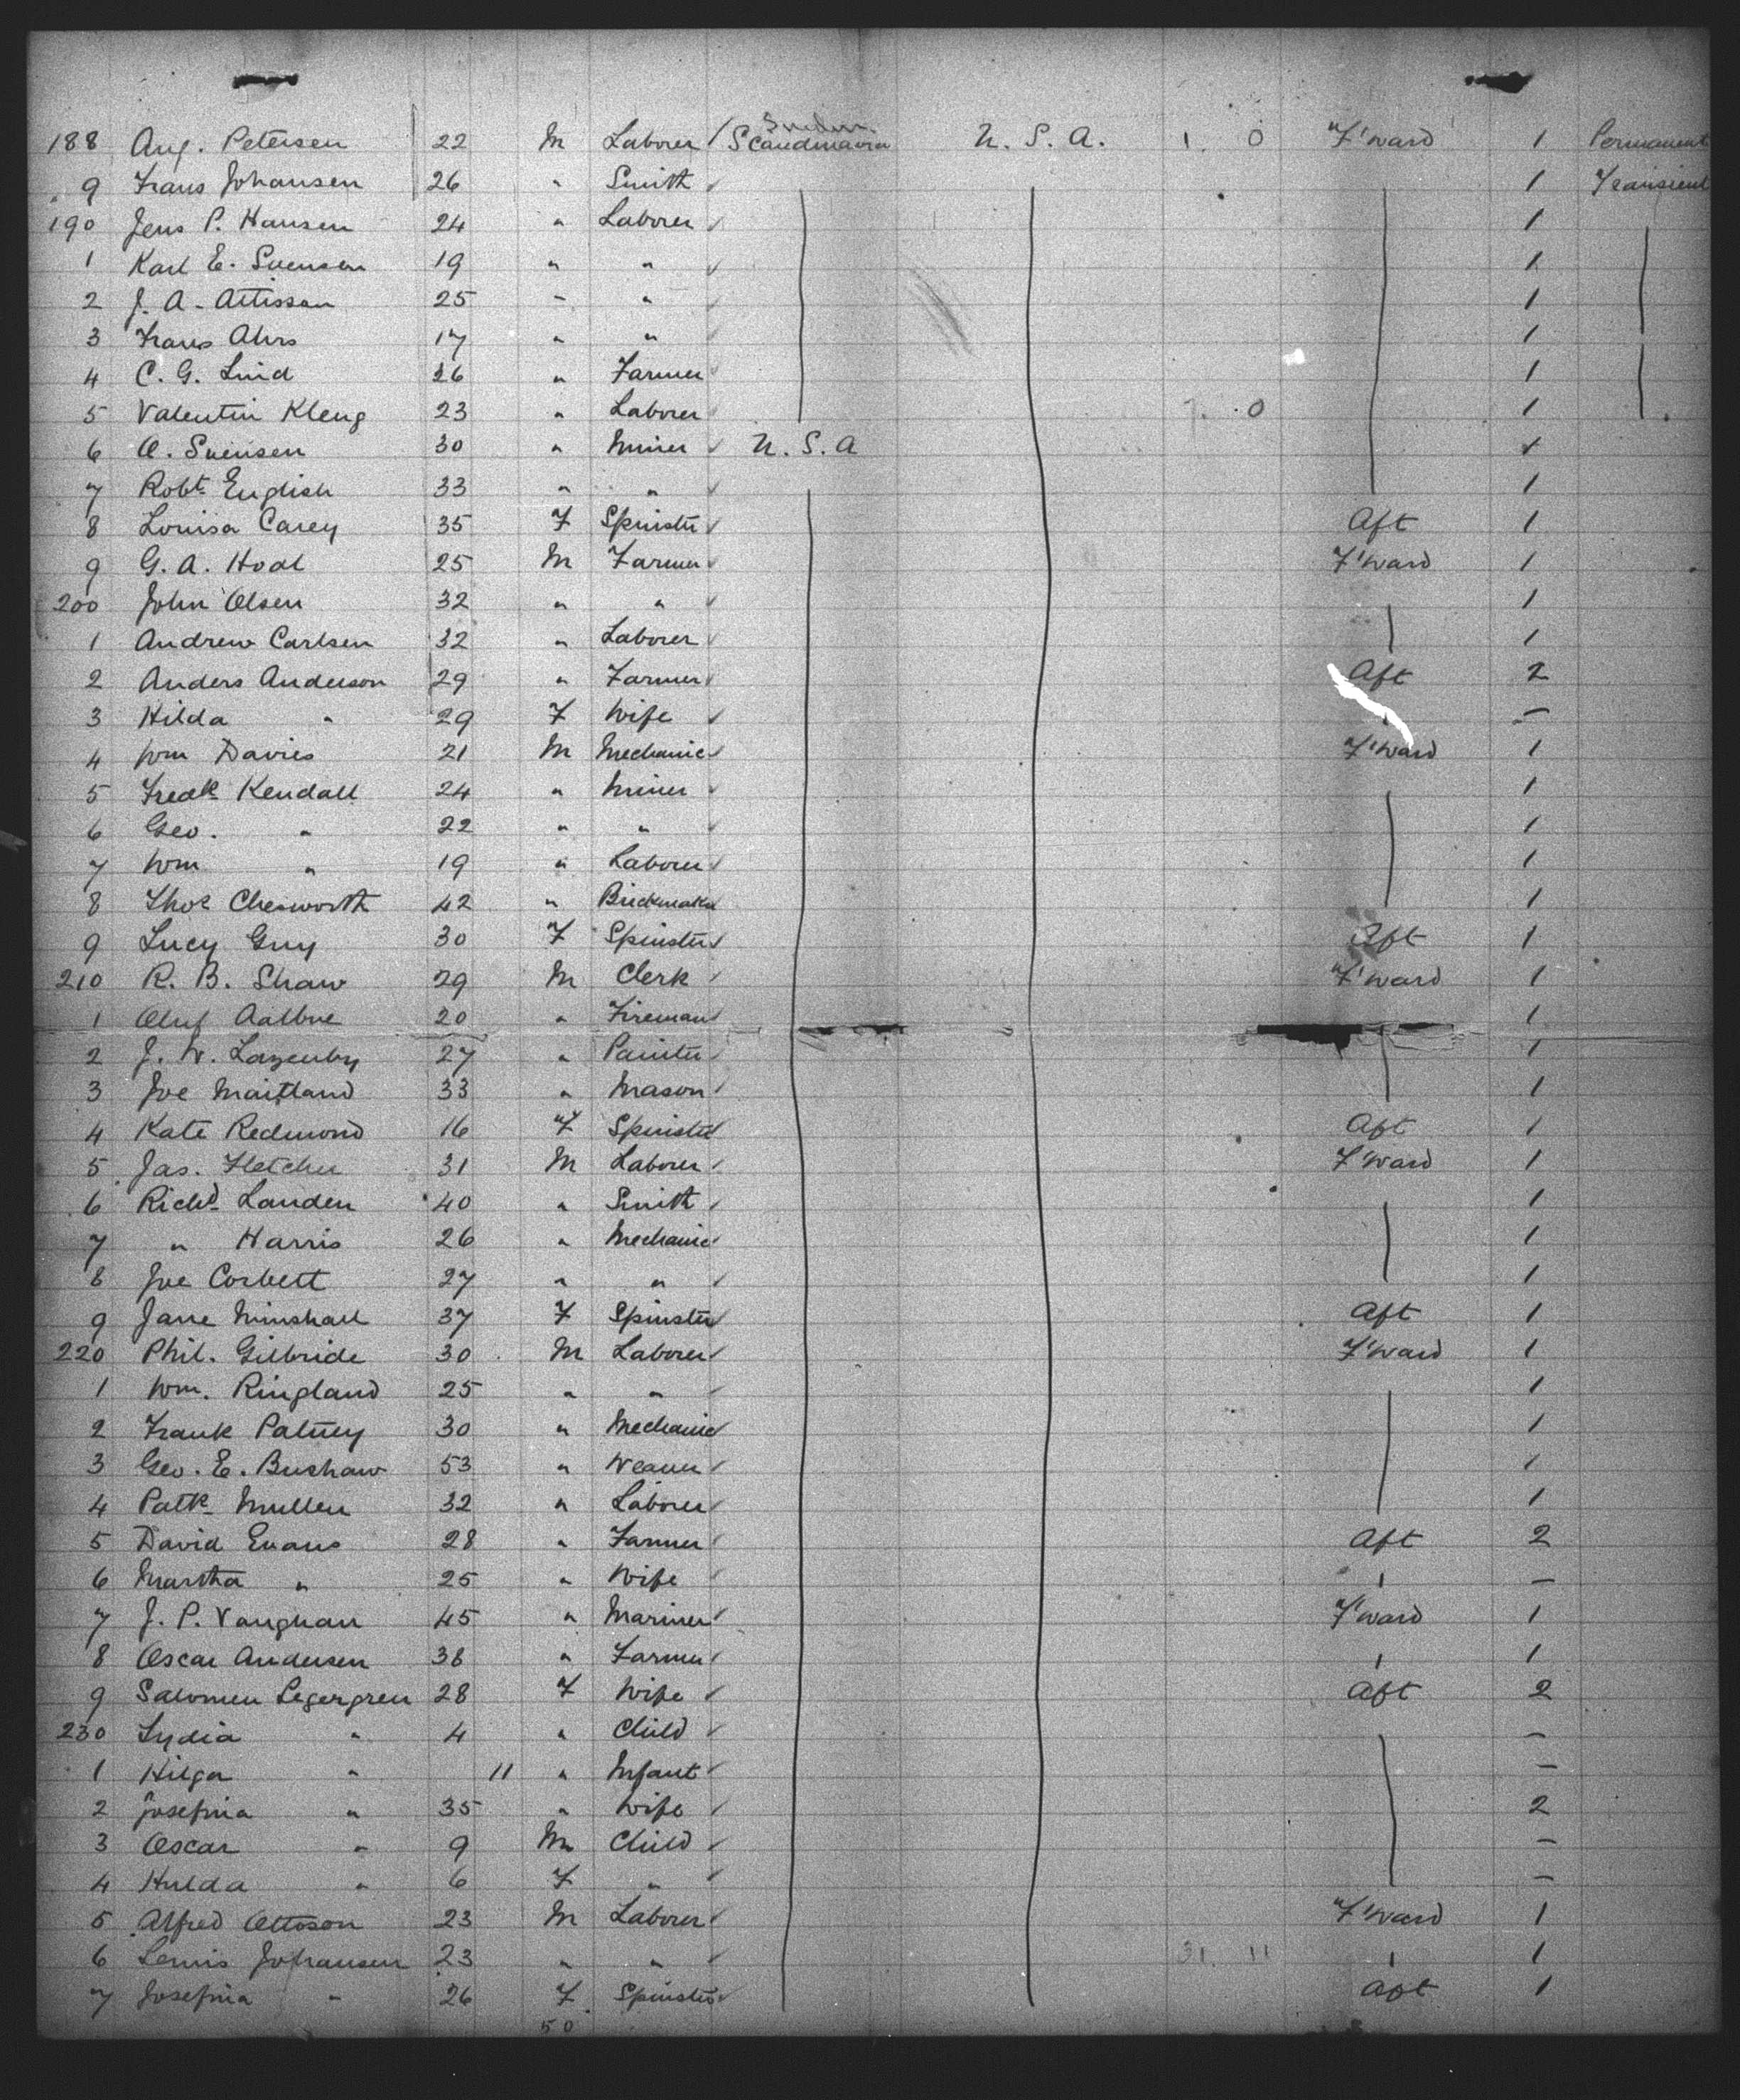 Sweden
188 Aug. Petersen 22 M Laborer / Scandinavia U. S. A. 1. 0 F'ward 1 Permanent
9 Frans Johansen 26 " Smith 1 Transient
190 Jens P. Hansen 24 " Laborer 1
1 Karl E. Svensen 19 " " 1
2 J. A. Attisson 25 " " 1
3 Frans Ahrs 17 " " 1
4 C. G. Lind 26 " Farmer 1
5 Valentin Kleng 23 " Laborer 1. 0 1
6 O. Svensen 30 " Miner U. S. A 1
7 Robt English 33 " " 1
8 Louisa Carey 35 F Spinster Aft 1
9 G. A. Hoal 25 M Farmer F'ward 1
200 John Olsen 32 " " 1
1 Andrew Carlsen 32 " Laborer 1
2 Anders Anderson 29 " Farmer Aft 2
3 Hilda " 29 F Wife -
4 Wm Davies 21 M Mechanic F'ward 1
5 Fredk Kendall 24 " Miner 1
6 Geo. " 22 " " 1
7 Wm " 19 " Laborer 1
8 Thos Chesworth 42 " Brickmaker 1
9 Lucy Guy 30 F Spinster Aft 1
210 R. B. Shaw 29 M Clerk F'ward 1
1 Oluf Aalbue 20 " Fireman 1
2 J. W. Lazenby 27 " Painter 1
3 Joe Maitland 33 " Mason 1
4 Kate Redmond 16 F Spinster Aft 1
5 Jas. Fletcher 31 M Laborer F'ward 1
6 Richd Landen 40 " Smith 1
7 " Harris 26 " Mechanic 1
8 Joe Corbett 27 " " 1
9 Jane Minshall 37 F Spinster Aft 1
220 Phil. Gilbride 30 M Laborer F'ward 1
1 Wm. Ringland 25 " " 1
2 Frank Patney 30 " Mechanic 1
3 Geo. E. Bushaw 53 " Weaver 1
4 Patk Mullen 32 " Laborer 1
5 David Evans 28 " Farmer Aft 2
6 Martha " 25 " Wife " -
7 J. P. Vaughan 45 " Mariner F'ward 1
8 Oscar Andersen 38 " Farmer " 1
9 Salomen Legergren 28 F Wife Aft 2
230 Lydia " 4 " Child -
1 Hilga " 11 " Infant -
2 Josefina " 35 " Wife 2
3 Oscar " 9 M Child -
4 Hulda " 6 F " -
5 Alfred Ottoson 23 M Laborer F'ward 1
6 Lewis Johansen 23 " " 31. 11 " 1
7 Josefina " 26 F Spinster Aft 1
50